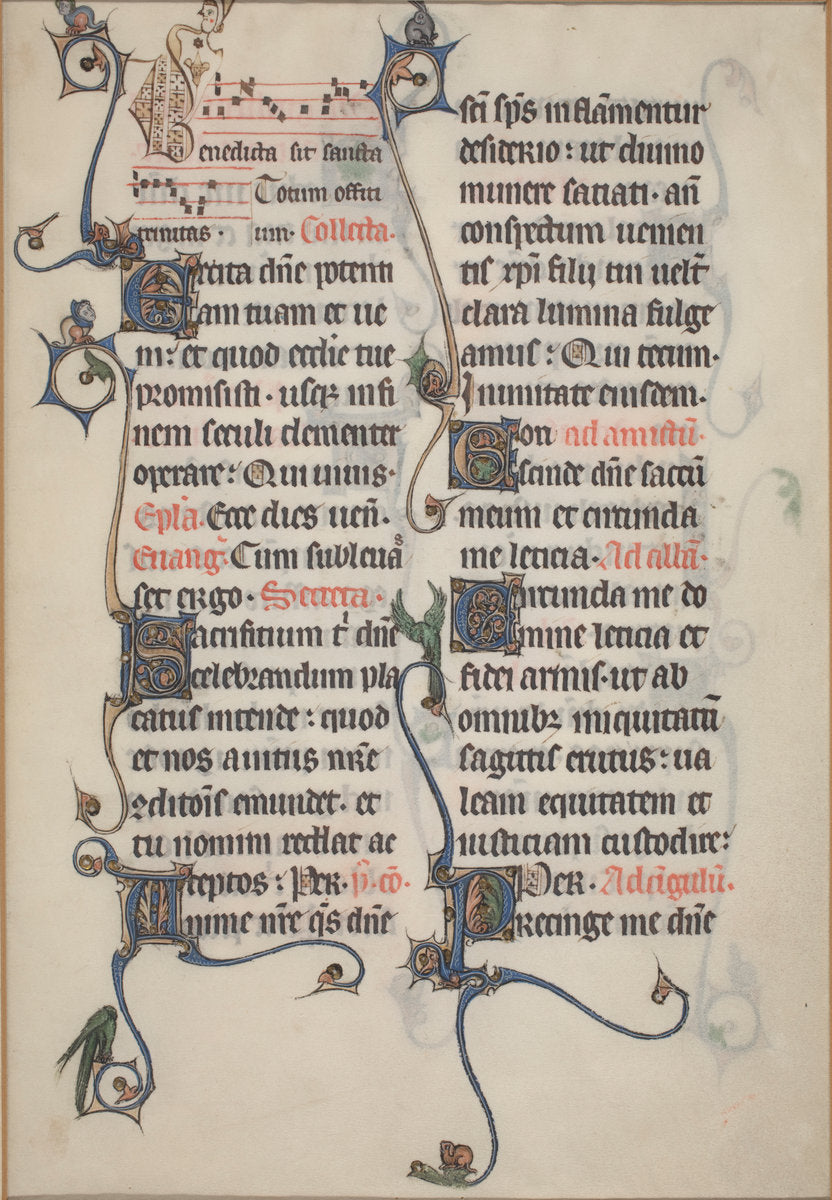 Benedicta sit sancta
Totum offiti
trinitas · um· Collecta·
Excita dn̄e potenti
am tuam et ue
ni: et quod eccl̄ie tue
promisisti · usqꝫ in fi
nem seculi clementer
operare: Qui uiuis·
Ep̄la. Ecce dies uen̄.
Euanḡ. Cum subleuas
set ergo · Secreta·
Sacrifitium t̄ dn̄e
celebrandum pla
catus intende: quod
et nos a uitiis nr̄e
ꝯditōis emundet. et
tu nomini reddat ac
ceptos: Per·
Anime nr̄e q̄s dn̄e
sc̄i sp̄s inflāmentur
desiderio: ut diuino
munere satiati· an̄
conspectum uenien
tis xp̄i filij tui uelut̄
clara lumina fulge
amus: Qui tecum·
In unitate eiusdem·
ad amictū·
scinde dn̄e saccū
meum et circunda
me leticia· Ad albā·
Circunda me do
mine leticia et
fidei armis· ut ab
omnibꝫ iniquitatū
sagittis erutus: ua
leam equitatem et
iusticiam custodire:
Per· Ad cīgulū·
Precinge me dn̄e